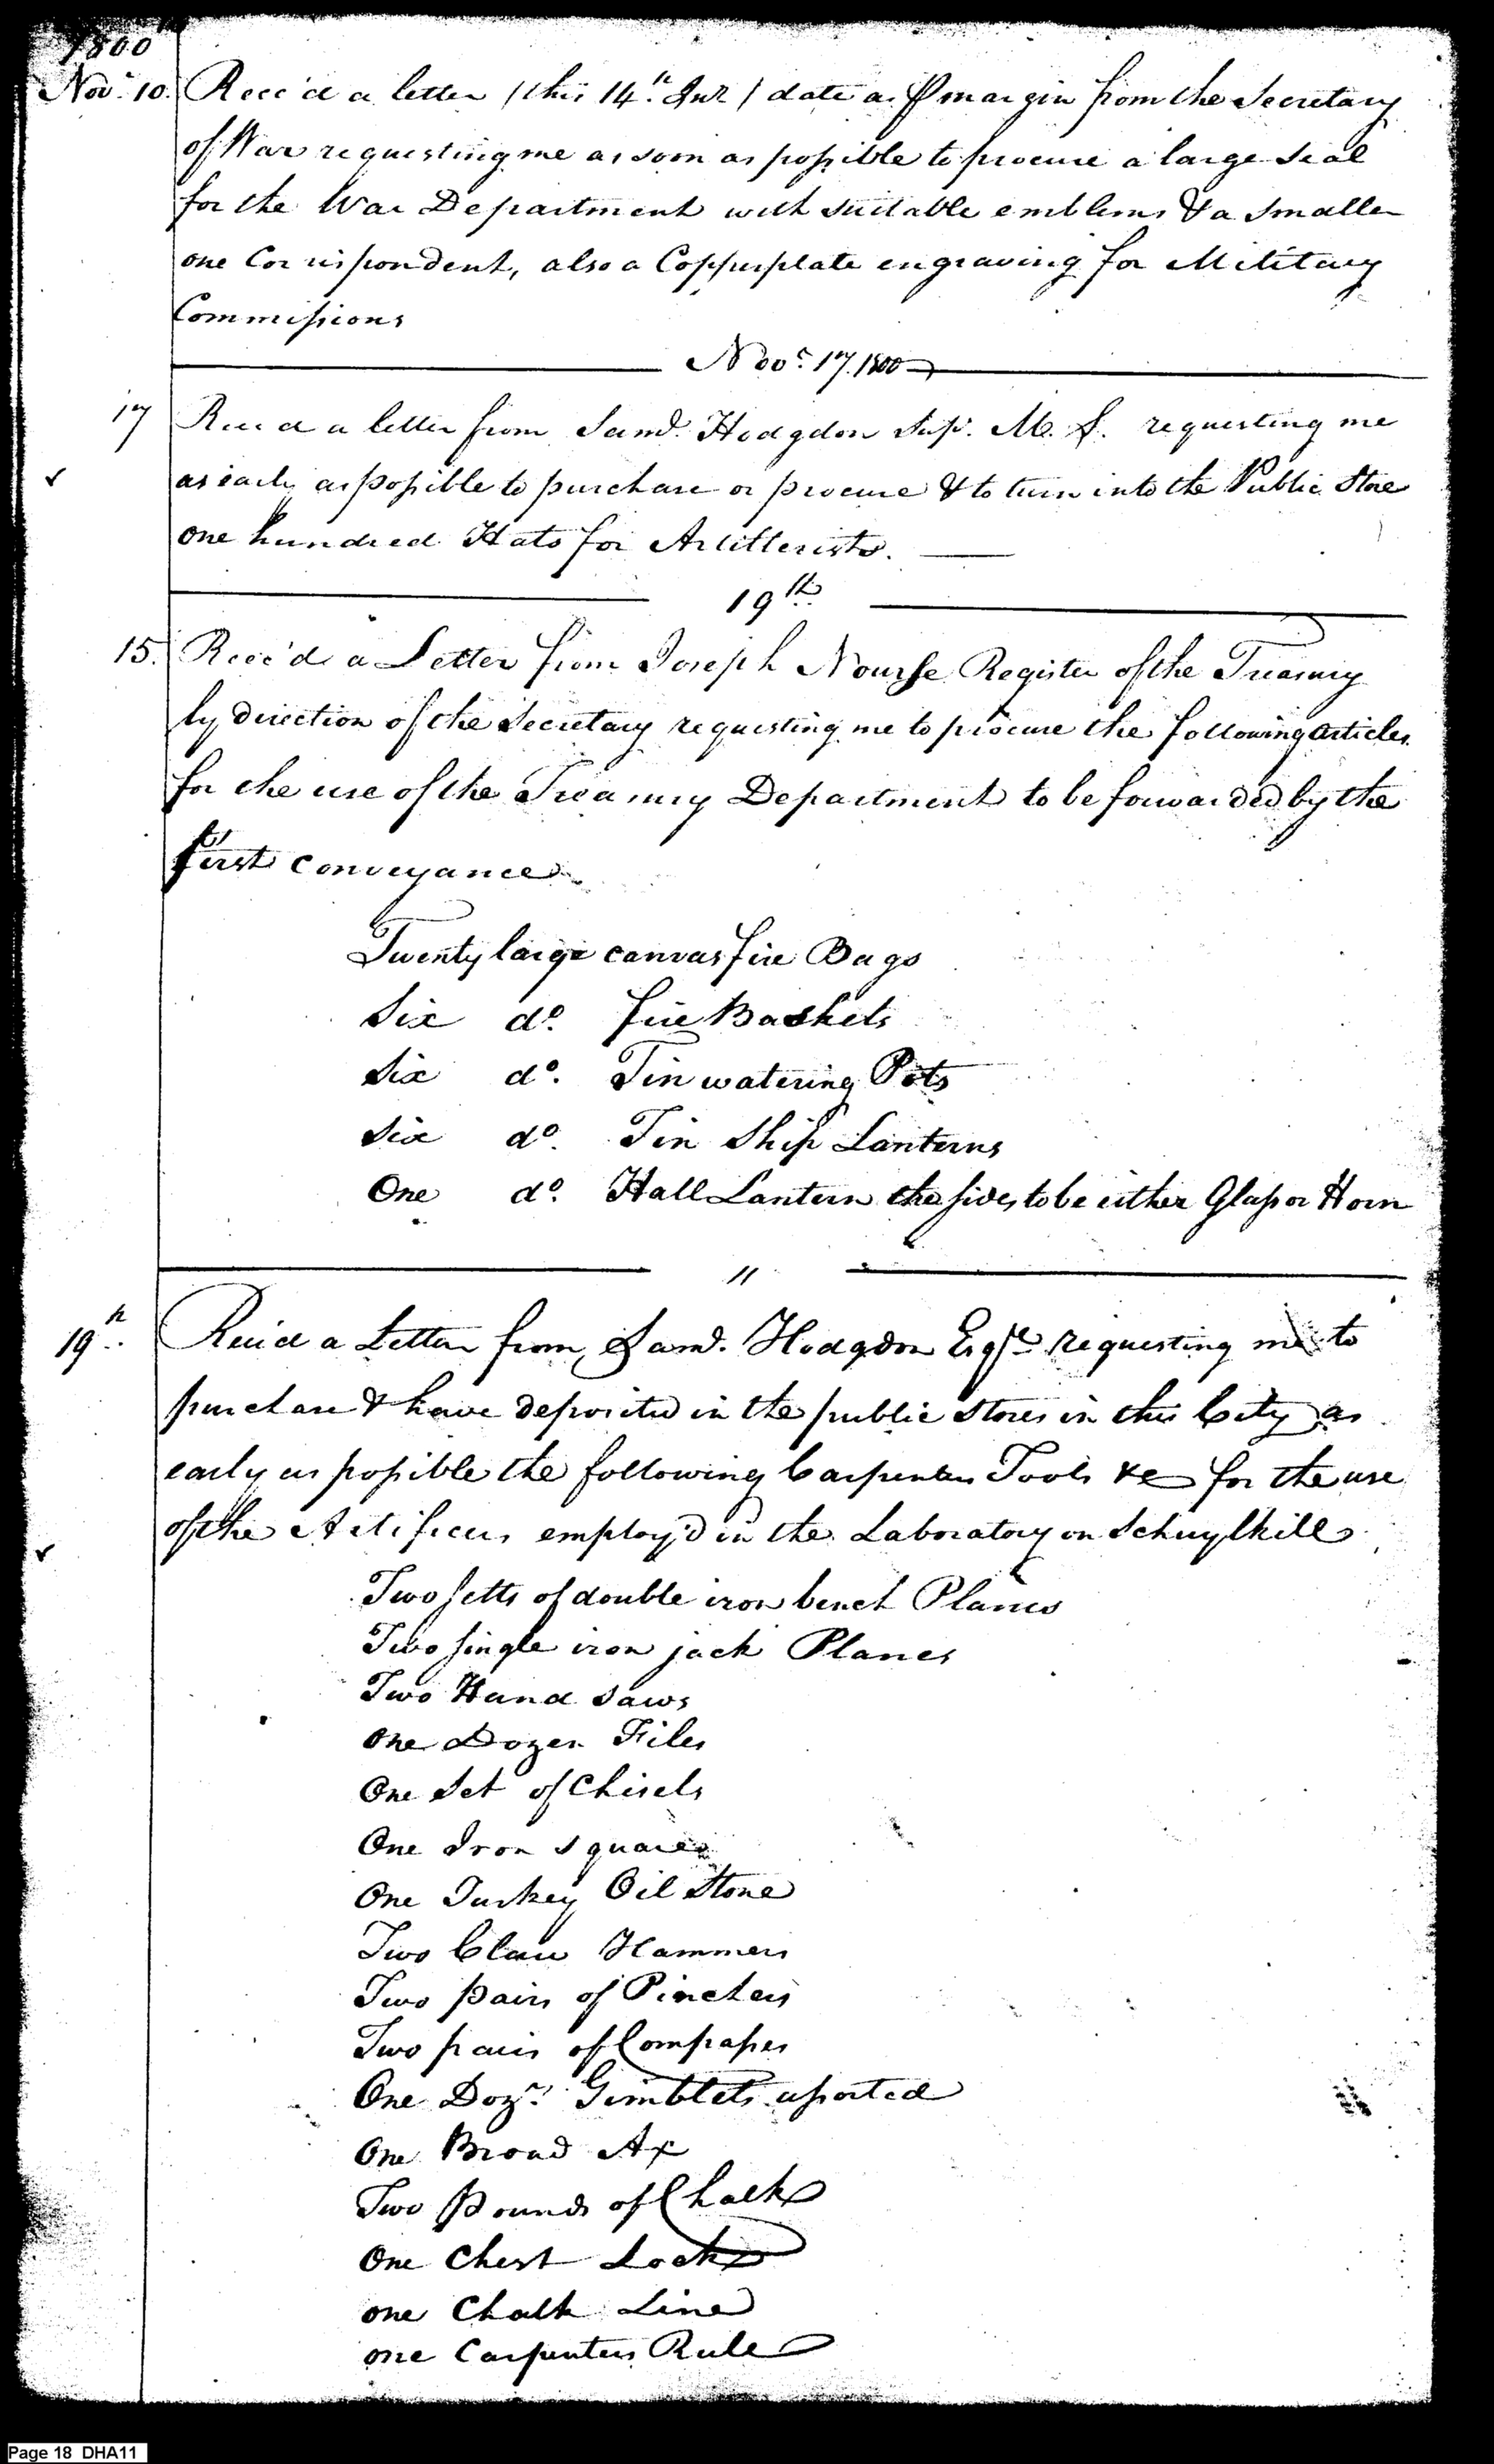 1800
Novr. 10. Rece'd a letter (this 14th Inst) date as pr margin from the Secretary
of War requesting me as soon as possible to procure a large Seal
for the War Department with suitable emblems & a smaller
one Correspondent, also a Copperplate engraving for Military
Commissions
Novr. 17. 1800
17 Rece'd a letter from Saml. Hodgdon Sup. M. S. requesting me
as early as possible to purchase or procure & to turn into the Public Store
one hundred Hats for Artillerists.
19th
15. Rece'd a Letter from Joseph Nourse Register of the Treasury
by direction of the Secretary requesting me to procure the following articles
for the use of the Treasury Department to be forwarded by the
first conveyance
Twenty large canvas fire Bags
Six do. fire Baskets
Six do. Tin watering Pots
Six do. Tin Ship Lanterns
One do. Hall Lantern the sides to be either Glass or Horn
"
19th. Rece'd a Letter from Saml. Hodgdon Esqre requesting me to
purchase & have deposited in the public Stores in this City as
early as possible the following Carpenters Tools &c for the use
of the Artificers employ'd in the Laboratory on Schuylkill
Two setts of double iron bench Planes
Two single iron jack Planes
Two Hand Saws
One Dozen Files
One Set of Chisels
One Iron Square
One Turkey Oil Stone
Two Claw Hammers
Two pairs of Pinchers
Two pairs of Compasses
One Dozn. Gimblets assorted
One Broad Ax
Two Pounds of Chalk
One Chest Lock
one Chalk Line
one Carpenters Rule
Page 18 DHA11